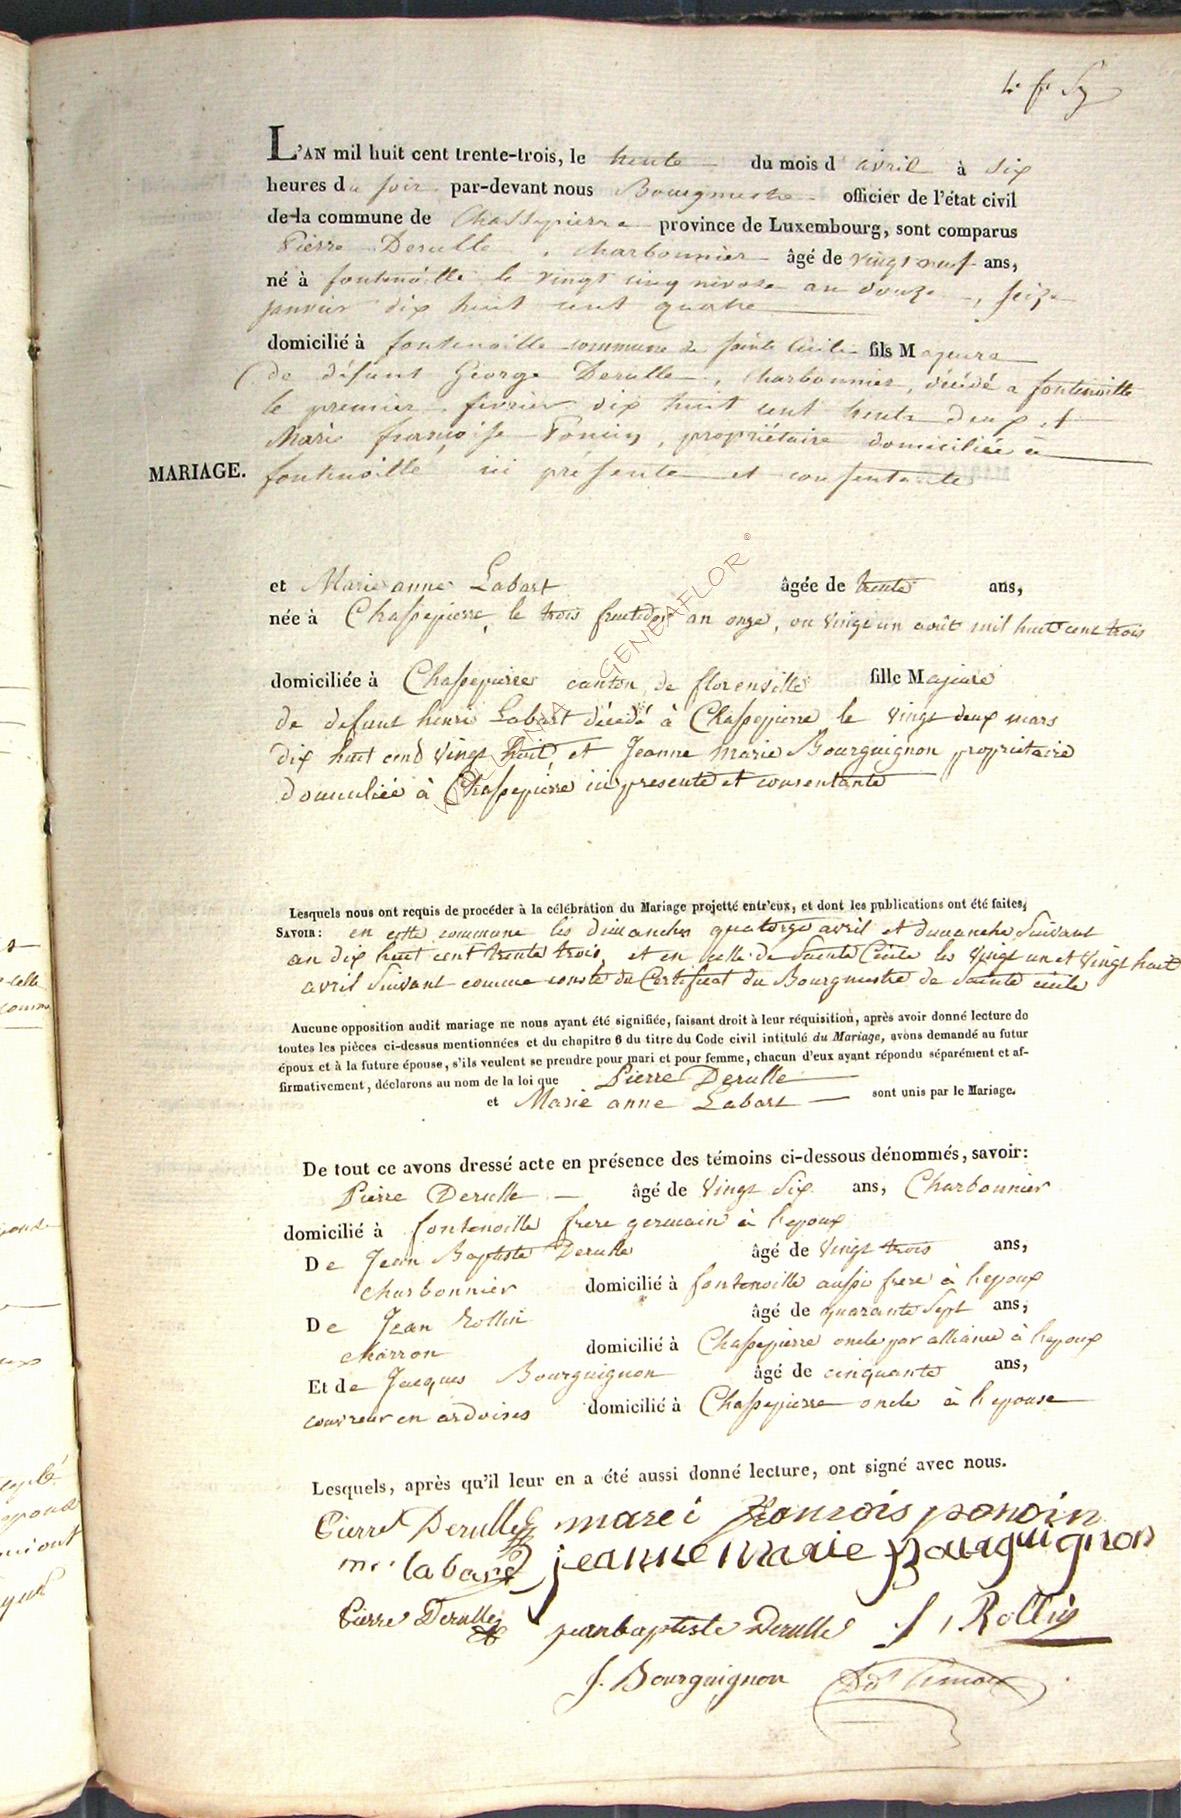 L'AN mil huit cent trente-trois, le trente du mois d'avril à six
heures du soir par-devant nous Bourgmestre officier de l'état civil
de la commune de Chassepierre province de Luxembourg, sont comparus
Pierre Derulle, charbonnier âgé de vingt neuf ans,
né à fontenoille le vingt cinq nivose an douze, seize
janvier dix huit cent quatre
domicilié à fontenoille commune de Sainte Cécile fils Majeure
de défunt George Derulle, charbonnier, décédé a fontenoille
le premier fevrier dix huit cent trente deux et
Marie françoise Poncin, propriétaire domiciliée à
MARIAGE. fontenoille ici présente et consentante
et Marie anne Labart âgée de trente ans,
née à Chassepierre, le trois fructidor an onze, ou vingt un août mil huit cent trois
domiciliée à Chassepierre canton de florenville fille Majeure
de defunt henri Labart décédé à Chassepierre le vingt deux mars
dix huit cend vingt huit, et Jeanne marie Bourguignon propriétaire
domiciliée à Chassepierre ici presente et consentante
Lesquels nous ont requis de procéder à la célébration du Mariage projetté entr'eux, et dont les publications ont été faites,
SAVOIR: en cette commune les dimanches quatorze avril et dimanche Suivant
an dix huit cent trente trois, et en celle de Sainte Cécile les vingt un et vingt huit
avril Suivant comme conste du Certificat du Bourgmestre de Sainte cécile
Aucune opposition audit mariage ne nous ayant été signifiée, faisant droit à leur réquisition, après avoir donné lecture de
toutes les pièces ci-dessus mentionnées et du chapitre 6 du titre du Code civil intitulé du Mariage, avons demandé au futur
époux et à la future épouse, s'ils veulent se prendre pour mari et pour femme, chacun d'eux ayant répondu séparément et af-
firmativement, déclarons au nom de la loi que Pierre Derulle
et Marie anne Labart sont unis par le Mariage.
De tout ce avons dressé acte en présence des témoins ci-dessous dénommés, savoir:
Pierre Derulle âgé de vingt six ans, Charbonnier
domicilié à fontenoille frere germain à l'epoux
De Jean Baptiste Derulle âgé de vingt trois ans,
charbonnier domicilié à fontenoille aussi frere à l'epoux
De Jean Rollin âgé de quarante sept ans,
charron domicilié à Chassepierre oncle par alliance à l'epoux
Et de Jacques Bourguignon âgé de cinquante ans,
couvreur en ardoises domicilié à Chassepierre oncle à l'epouse
Lesquels, après qu'il leur en a été aussi donné lecture, ont signé avec nous.
Pierre Derulle marei francois poncin
m. labart jeanne marie Bourguignon
Pierre Derulle jeanbaptiste Derulle J. Rollin
J. Bourguignon
GENEAFLOR ©